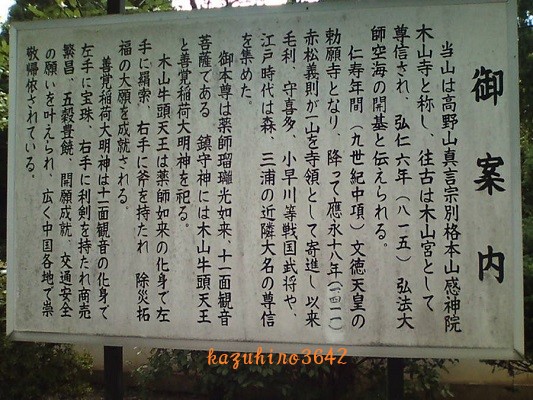 御案内
当山は高野山真言宗別格本山感神院
木山寺と称し、往古は木山宮として
尊信され、弘仁六年（八一五）弘法大
師空海の開基と伝えられる。
仁寿年間（九世紀中項）文徳天皇の
勅願寺となり、降って應永十八年（一四一一）
赤松義則が一山を寺領として寄進し以来
毛利、守喜多、小早川等戦国武将や、
江戸時代は森、三浦の近隣大名の尊信
を集めた。
御本尊は薬師瑠璃光如来、十一面観音
菩薩である 鎮守神には木山牛頭天王
と善覚稲荷大明神を祀る。
木山牛頭天王は薬師如来の化身で左
手に羂索、右手に斧を持たれ 除災拓
福の大願を成就される
善覚稲荷大明神は十一面観音の化身で
左手に宝珠、右手に利剣を持たれ商売
繁昌、五穀豊饒、開願成就、交通安全
の願いを叶えられ、広く中国各地で崇
敬帰依されている。
kazuhiro3642